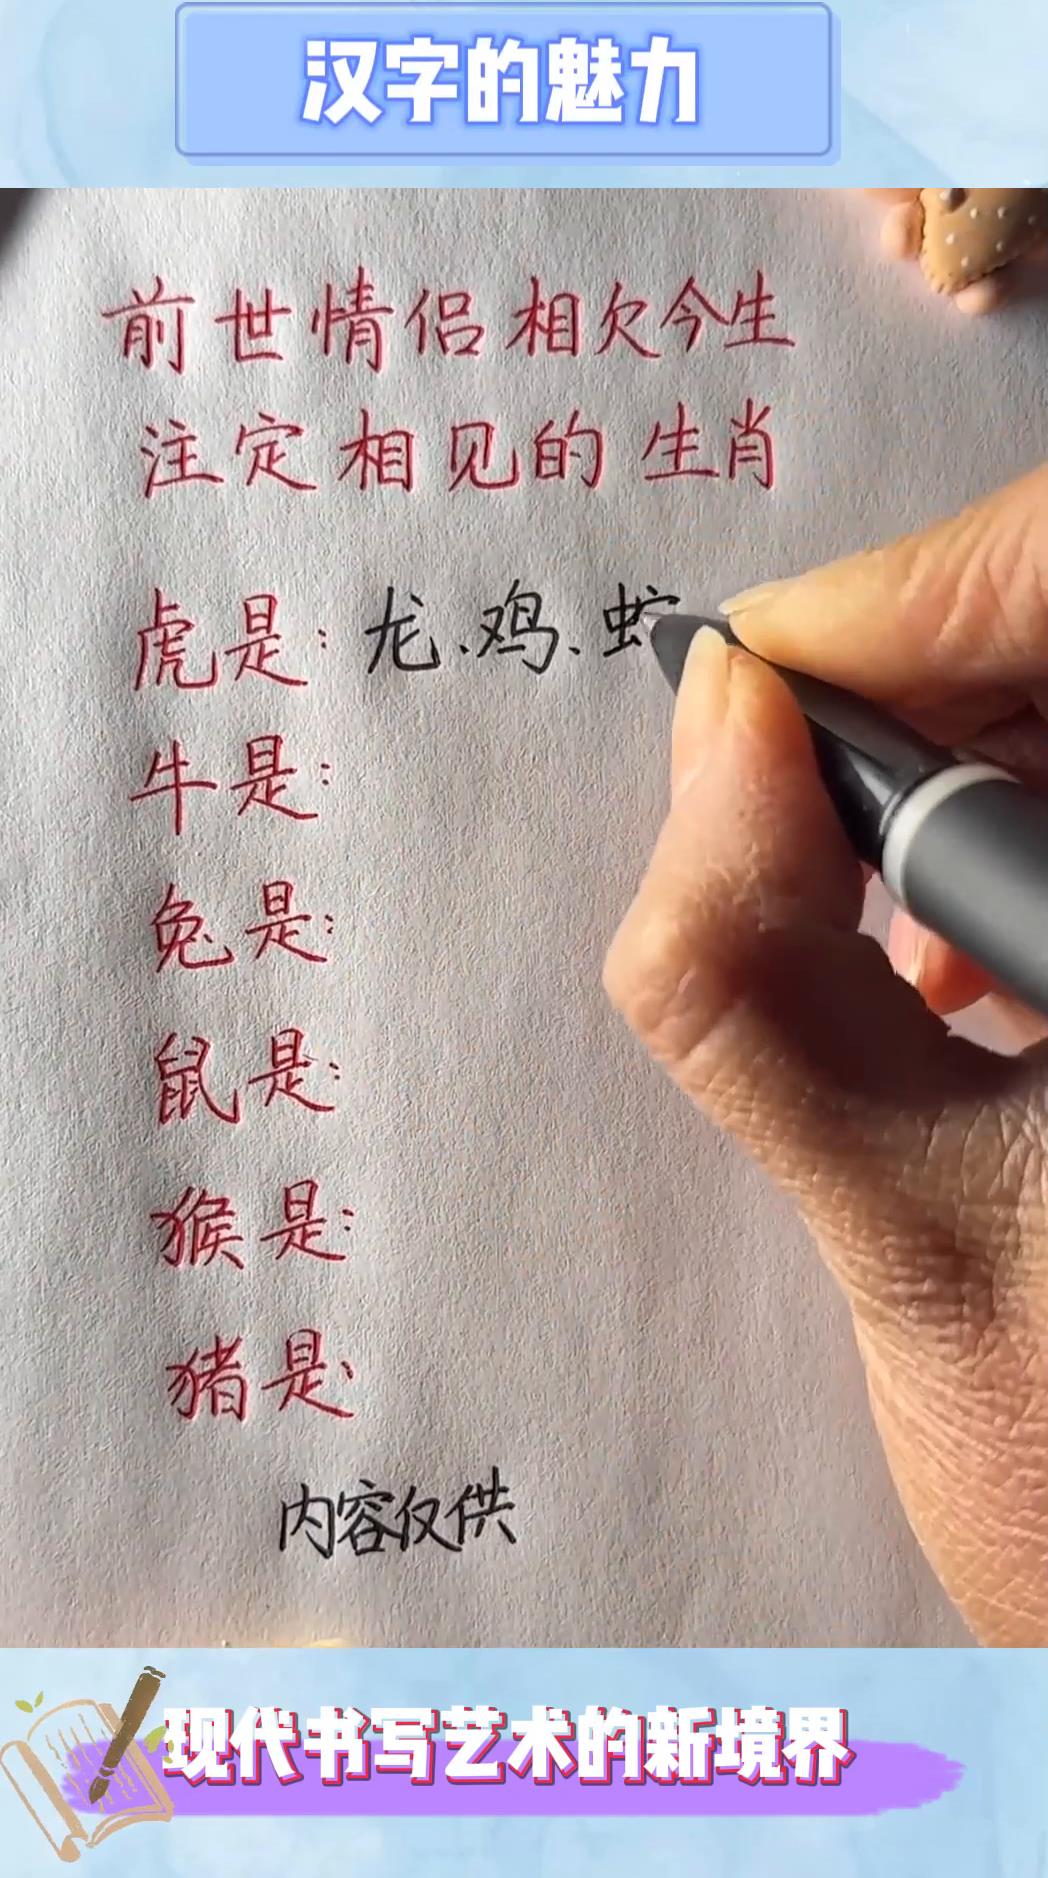 汉字的魅力
前世情侣相欠今生
注定相见的生肖
虎是：龙、鸡、蛇
牛是：
兔是：
鼠是：
猴是：
猪是：
内容仅供
现代书写艺术的新境界